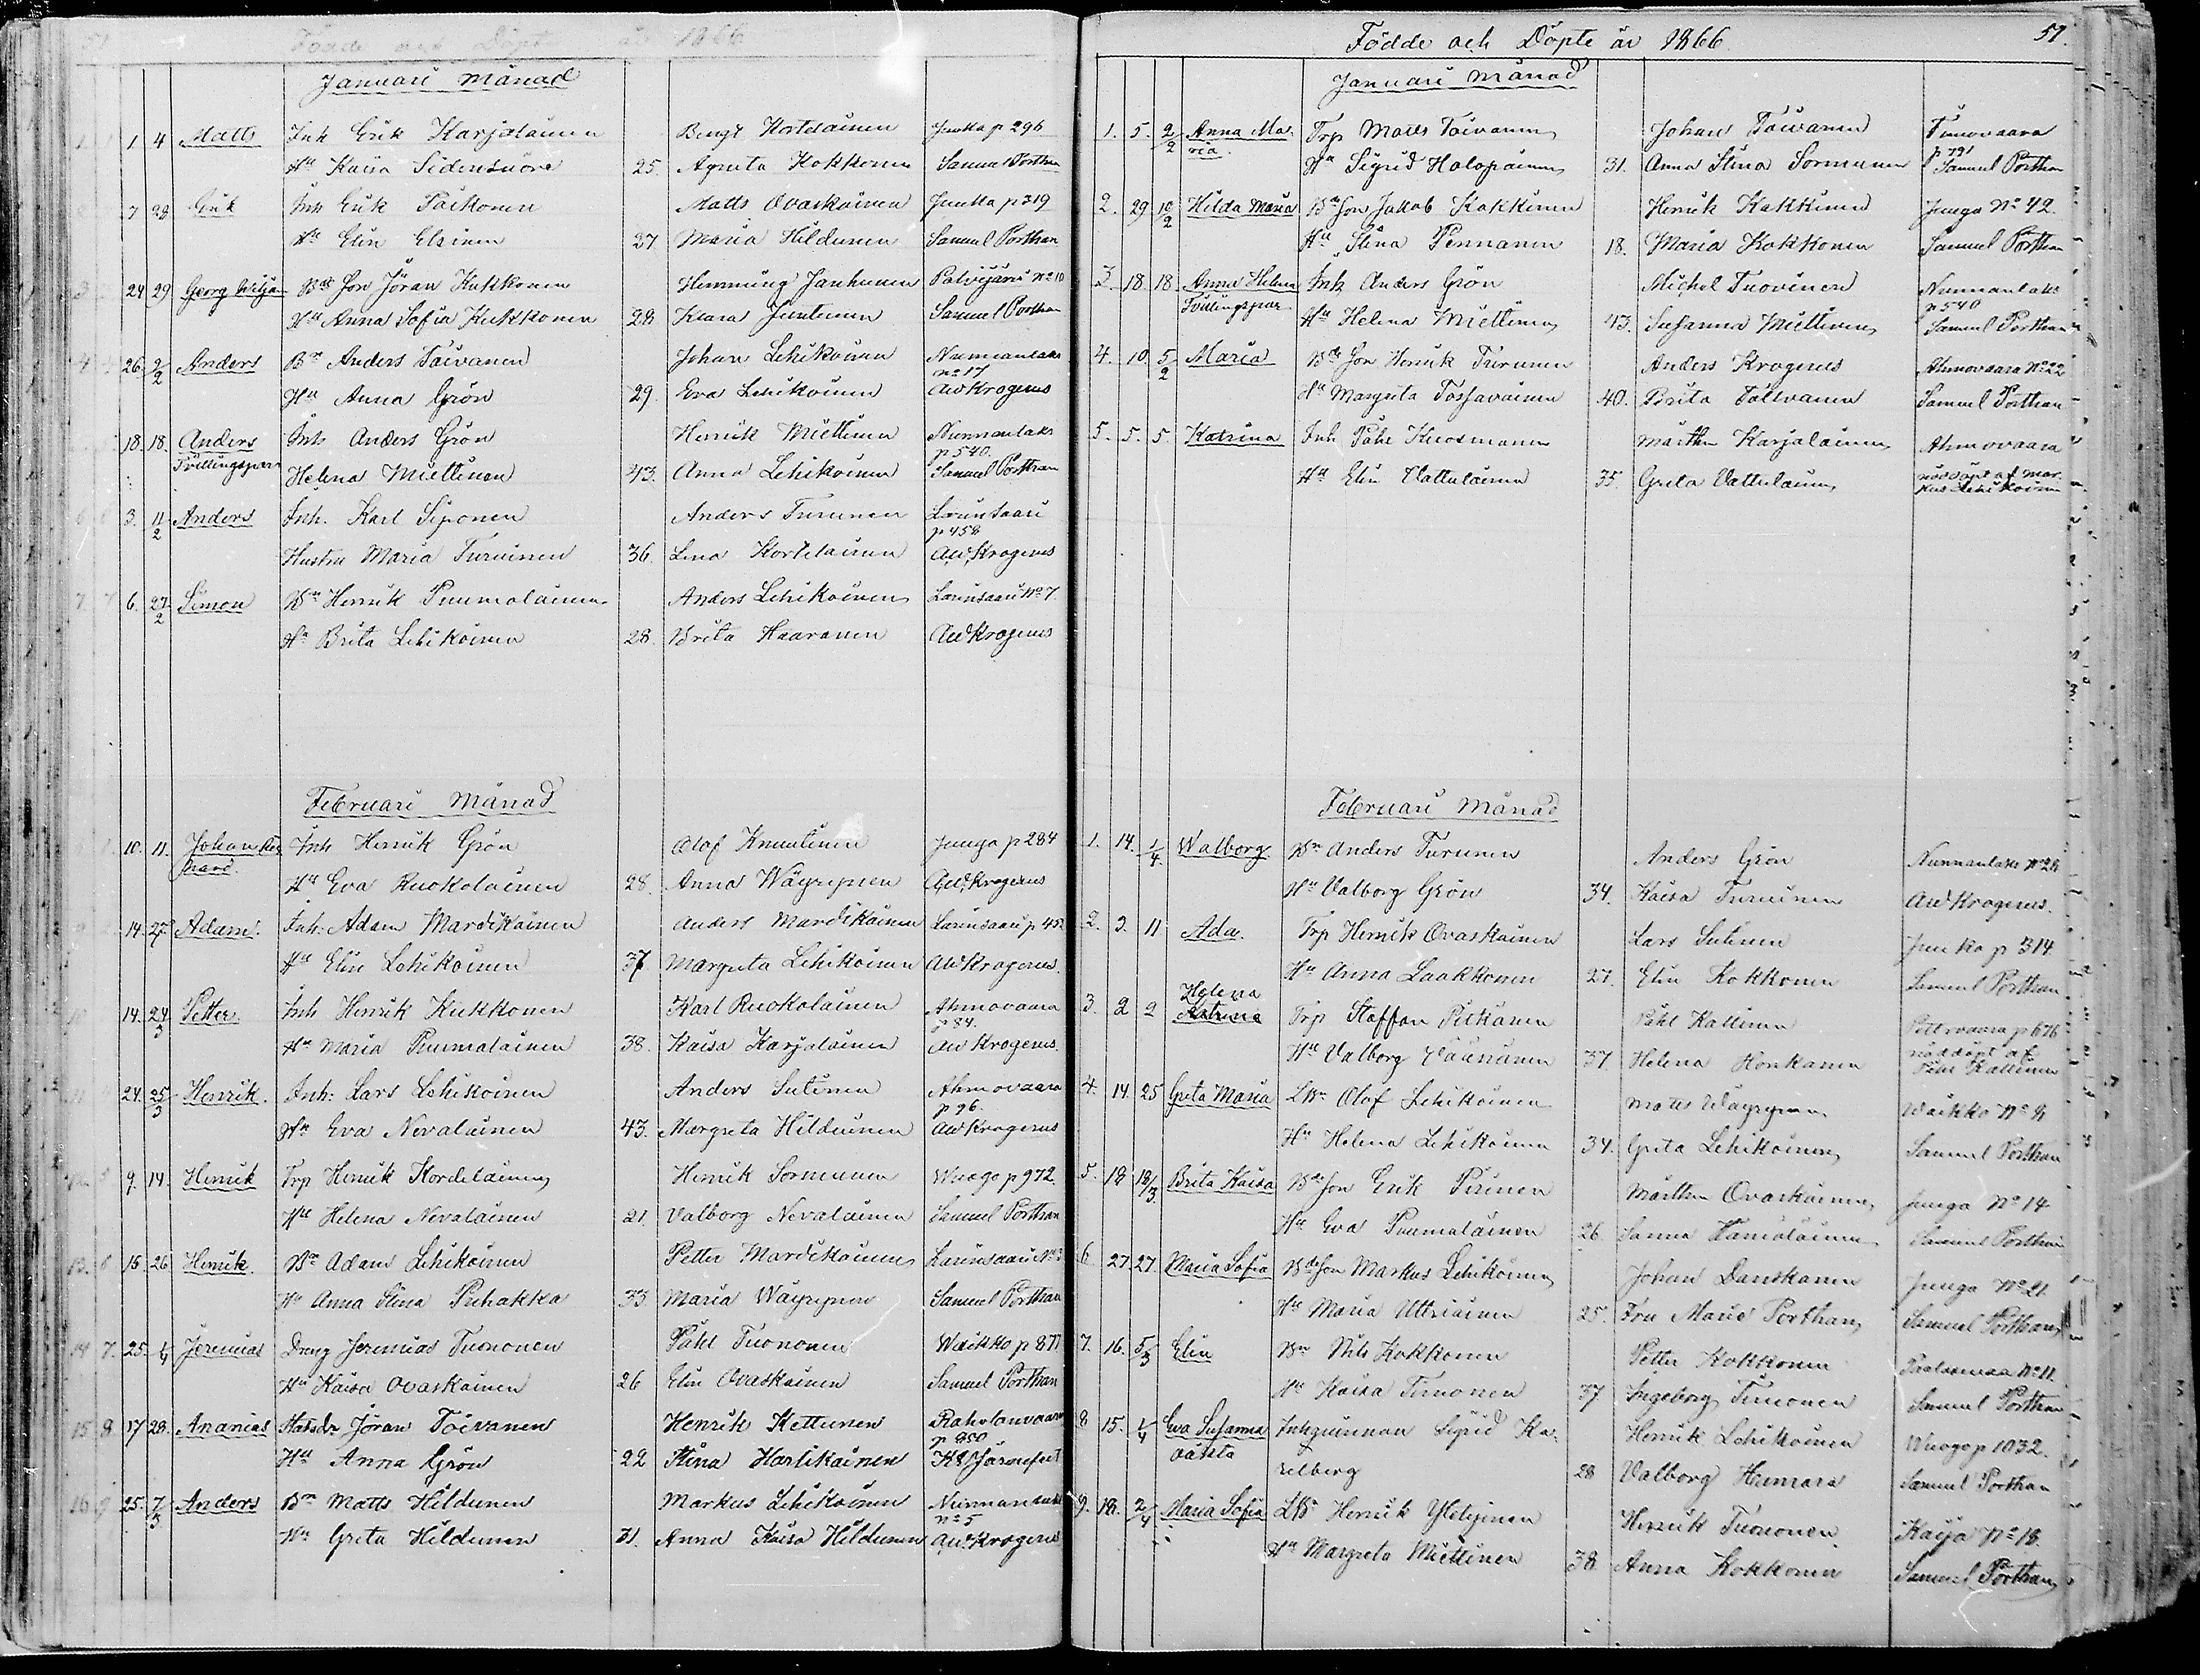 Födde och Döpte år 1866
Januari Månad
1 4 Matts Inh Erik Karjalainen Bengt Kortelainen Junka p 296
Hu Kaisa Sidensuore 25. Agneta Kokkonen Samuel Porthan
7 28 Erik Inh Erik Päikonen Matts Ovaskainen Junka p 319
Hu Elin Elsinen 27 Maria Hildunen Samuel Porthan
24 29 Georg Wilja Bde Son Jöran Kukkonen Hemming Janhunen Polvijärvi No 10
Hu Anna Sofia Kukkonen 28 Klara Juntunen Samuel Porthan
26 2/2 Anders Bn Anders Toivanen Johan Lehikoinen Nunnanlaks
no 17
Hu Anna Grön 29. Eva Lehikoinen AW Krogerus
18. 18. Anders Inh Anders Grön Henrik Miettinen Nunnanlaks
p 540.
Tvillingspar Helena Miettinen 43. Anna Lehikoinen Samuel Porthan
3. 11/2 Anders Inh. Karl Siponen Anders Turunen Larinsaari
p 458
Hustru Maria Turuinen 36. Lena Kortelainen AW Krogerus
7 6. 27/2 Simon Bn Henrik Puumalainen Anders Lehikoinen Larinsaari No 7
Hu Brita Lehikoinen 28. Brita Haaranen AW Krogerus
Februari Månad
10. 11. Johan Inh Henrik Grön Olof Knuutinen Junga p 284
nard. Hu Eva Ruokolainen 28. Anna Wäyrynen AW Krogerus
14. Adam. Inh: Adam Mardikainen Anders Mardikainen Larinsaari p 45
Hu Elin Lehikoinen 37. Margreta Lehikoinen AW Krogerus.
14. 24/3 Petter. Inh Henrik Kukkonen Karl Ruokolainen Ahmovaara
p 84.
Hu Maria Puumalainen 38. Kaisa Karjalainen AW Krogerus.
24. 25/3 Henrik. Inh: Lars Lehikoinen Anders Sutinen Ahmovaara
p 96.
Hu Eva Nevalainen 43. Margreta Hilduinen AW Krogerus
9. 14. Henrik Trp Henrik Kordelainen Henrik Sormunen Wuogo p 972.
Hu Helena Nevalainen 21. Valborg Nevalainen Samuel Porthan
13. 6 15. 26 Henrik. Bn Adam Lehikoinen Petter Mardikainen Larinsaari No 3
Hu Anna Stina Puhakka 33 Maria Wäyrynen Samuel Porthan
14 7. 25. 1/4 Jeremias Dreng Jeremias Tuononen Påhl Tuononen Waikko p 877
Hu Kaisa Ovaskainen 26 Elin Ovaskainen Samuel Porthan
15 8 17 28. Ananias Jöran Toivanen Henrik Kettunen Raholanvaara
p 950
Hu Anna Grön 22 Stina Hartikainen Järnefelt
16 9 25. 7/3 Anders Bn Matts Hildunen Markus Lehikoinen Nunnanlaks
no 5
Hu Greta Hildunen 31. Anna Kaisa Hildunen AW Krogerus
Födde och Döpte år 1866. 51.
Januari Månad
1. 5. 2/2 Anna Ma- Trp Matts Toivanen Johan Toivanen Timovaara
ria. Hu Sigrid Holopainen 31. Anna Stina Sormunen p 791 Samuel Porthan
2. 29. 10/2 Hilda Maria Bde Son Jakob Kakkinen Henrik Kakkinen Junga No 42.
Hu Stina Pennanen 18. Maria Kokkonen Samuel Porthan
3. 18. 18. Anna Helena Inh Anders Grön Michel Tuovinen Nunnanlaks
p 540
Tvillingspar Hu Helena Miettinen 43. Susanna Miettinen Samuel Porthan
4. 10. 5/2 Maria Bde Son Henrik Turunen Anders Krogerus Ahmovaara No 22
Hu Margreta Tossavainen 40. Brita Toivanen Samuel Porthan
5. 5. 5. Katrina Inh Påhl Kuosmanen Mårthen Karjalainen Ahmovaara
Hu Elin Vattulainen 35. Greta Vattulainen nöddöpt af Mar-
kus Lehikoinen
Februari Månad
1. 14. 1/4. Walborg. Bn Anders Turunen Anders Grön Nunnanlaks No 28
Hu Valborg Grön 34. Kaisa Turuinen AW Krogerus.
2. 3. 11 Ada. Trp Henrik Ovaskainen Lars Sutinen Junka p 314.
Hu Anna Laakkonen 27. Elin Kokkonen Samuel Porthan
Helena
3. 2 2 Katrina Trp Staffan Pitkänen Påhl Kallinen p 676
Hu Valborg Väänänen 37. Helena Honkanen nöddöpt af
Påhl Kallinen
4. 14. 25 Greta Maria LBn Olof Lehikoinen Matts Wäyrynen Waikko No 9
Hu Helena Lehikoinen 34. Greta Lehikoinen Samuel Porthan
5. 18 18/3 Brita Kaisa Bde Son Erik Piirinen Mårthen Ovaskainen Junga No 14
Hu Eva Puumalainen 26 Sanna Samuel Porthan
6. 27. 27. Maria Sofia Bde Son Markus Lehikoinen Johan Danskanen Junga No 21.
Hu Maria Uttriainen 25. Fru Marie Porthan Samuel Porthan
7. 16. 5/3 Elin Bn Nils Kokkonen Petter Kokkonen No 11.
Hu Kaisa Timonen 37 Ingeborg Timonen Samuel Porthan
8 15. 1/4 Eva Susanna Inhqvinnan Sigrid Ka- Henrik Lehikoinen Wuogo p 1032.
oäkta relberg 28 Valborg Heinara Samuel Porthan
9. 18. 2/4 Maria Sofia LBn Henrik Yletyinen Henrik Tuononen Kaija No 18.
Hu Margreta Miettinen 38 Anna Kokkonen Samuel Porthan